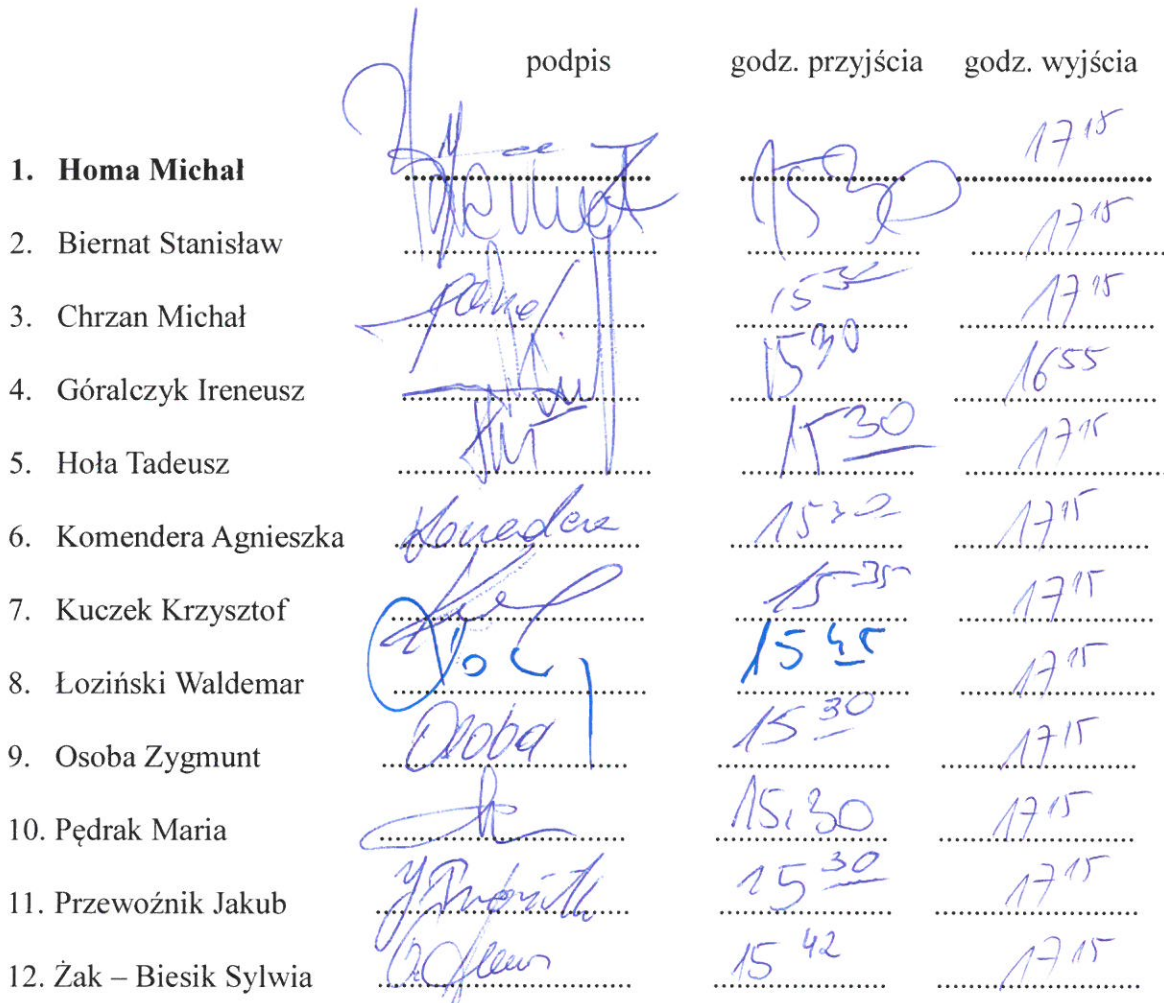 podpis godz. przyjścia godz. wyjścia
1. Homa Michał 15 30 17 15
2. Biernat Stanisław 17 15
3. Chrzan Michał 15 30 17 15
4. Góralczyk Ireneusz 15 30 16 55
5. Hoła Tadeusz 15 30 17 15
6. Komendera Agnieszka Komendera 15 30 17 15
7. Kuczek Krzysztof 15 35 17 15
8. Łoziński Waldemar 15 45 17 15
9. Osoba Zygmunt Osoba 15 30 17 15
10. Pędrak Maria 15.30 17 15
11. Przewoźnik Jakub 15 30 17 15
12. Żak – Biesik Sylwia 15 42 17 15